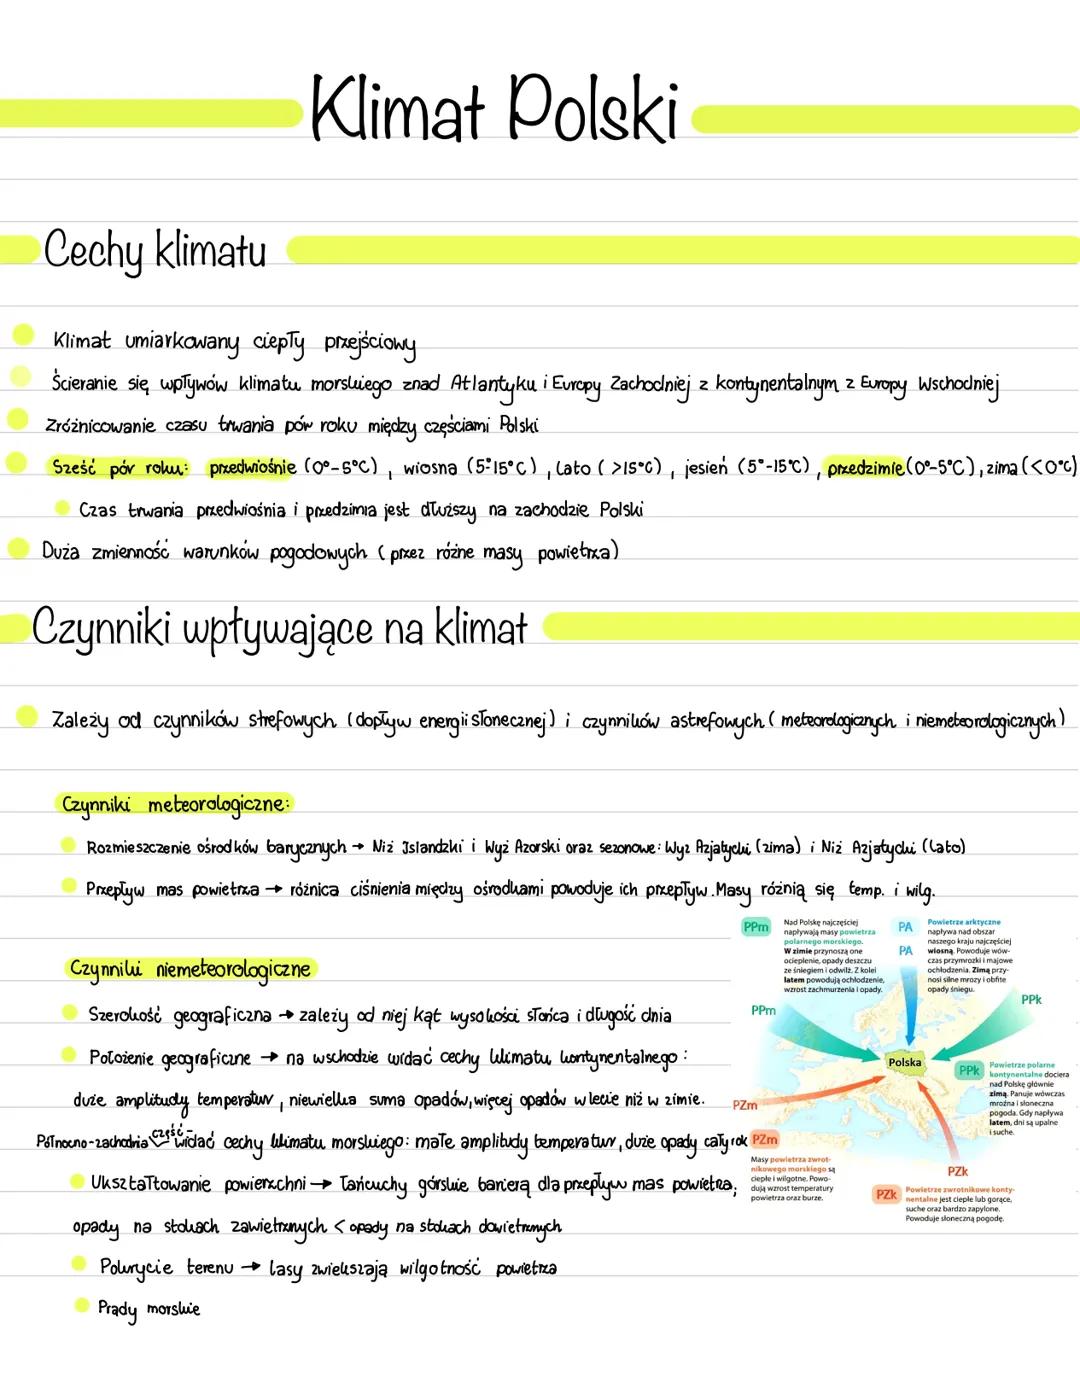 Klimat Polski
Cechy klimatu
Klimat umiarkowany ciepły przejściowy
Ścieranie się wpływów klimatu morskiego znad Atlantyku i Europy Zachodniej z kontynentalnym z Europy Wschodniej
Zróżnicowanie czasu trwania pór roku między częściami Polski
Sześć pór roku: przedwiośnie (0°-5°C), wiosna (5°-15°C), Lato (>15°C), jesień (5°-15°C), przedzimie (0°-5°C), zima (<0°C)
Czas trwania przedwiośnia i przedzimia jest dłuższy na zachodzie Polski
Duża zmienność warunków pogodowych (przez różne masy powietrza)
Czynniki wpływające na klimat
Zależy od czynników strefowych (dopływ energii słonecznej) i czynników astrefowych (meteorologicznych i niemeteorologicznych)
Czynniki meteorologiczne:
Rozmieszczenie ośrodków barycznych → Niż Islandzki i Wyż Azorski oraz sezonowe: Wyż Azjatycki (zima) i Niż Azjatycki (Lato)
Przepływ mas powietrza → różnica ciśnienia między ośrodkami powoduje ich przepływ. Masy różnią się temp. i wilg.
Czynniki niemeteorologiczne
Szerokość geograficzna → zależy od niej kąt wysokości słońca i długość dnia
Położenie geograficzne → na wschodzie widać cechy klimatu kontynentalnego:
duże amplitudy temperatur, niewielka suma opadów, więcej opadów w lecie niż w zimie.
Północno-zachodnia część - widać cechy klimatu morskiego: małe amplitudy temperatur, duże opady cały rok
Ukształtowanie powierzchni → Łańcuchy górskie barierą dla przepływu mas powietrza;
opady na stokach zawietrznych < opady na stokach dowietrznych
Pokrycie terenu → Lasy zwiększają wilgotność powietrza
Prądy morskie
PPm
Nad Polskę najczęściej
napływają masy powietrza
polarnego morskiego.
W zimie przynoszą one
ocieplenie, opady deszczu
ze śniegiem i odwilż. Z kolei
latem powodują ochłodzenie,
wzrost zachmurzenia i opady.
PA
PA
Powietrze arktyczne
napływa nad obszar
naszego kraju najczęściej
wiosną. Powoduje wów-
czas przymrozki i majowe
ochłodzenia. Zimą przy-
nosi silne mrozy i obfite
opady śniegu.
PPm
PPk
Polska
PPk
Powietrze polarne
kontynentalne dociera
nad Polskę głównie
zimą. Panuje wówczas
mroźna i słoneczna
pogoda. Gdy napływa
latem, dni są upalne
i suche.
PZm
PZm
Masy powietrza zwrot-
nikowego morskiego są
ciepłe i wilgotne. Powo-
dują wzrost temperatury
powietrza oraz burze.
PZk
PZk
Powietrze zwrotnikowe konty-
nentalne jest ciepłe lub gorące,
suche oraz bardzo zapylone.
Powoduje słoneczną pogodę.